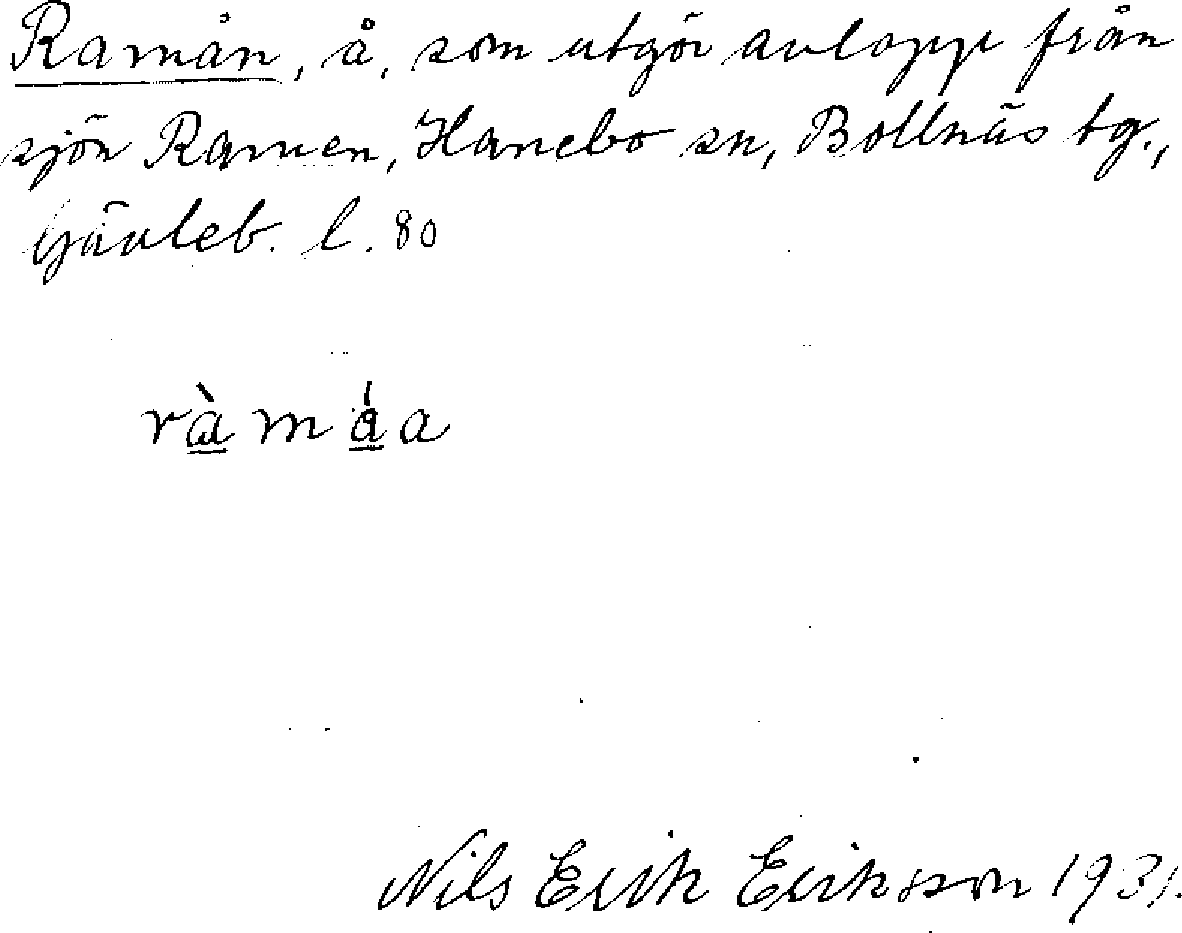 Ramån, å, som utgör avlopp från
sjön Ramen, Hanebo sn, Bollnäs tg.,
Gävleb. l. 80
rà̲ m á̲ a
Nils Erik Eriksson 1931.